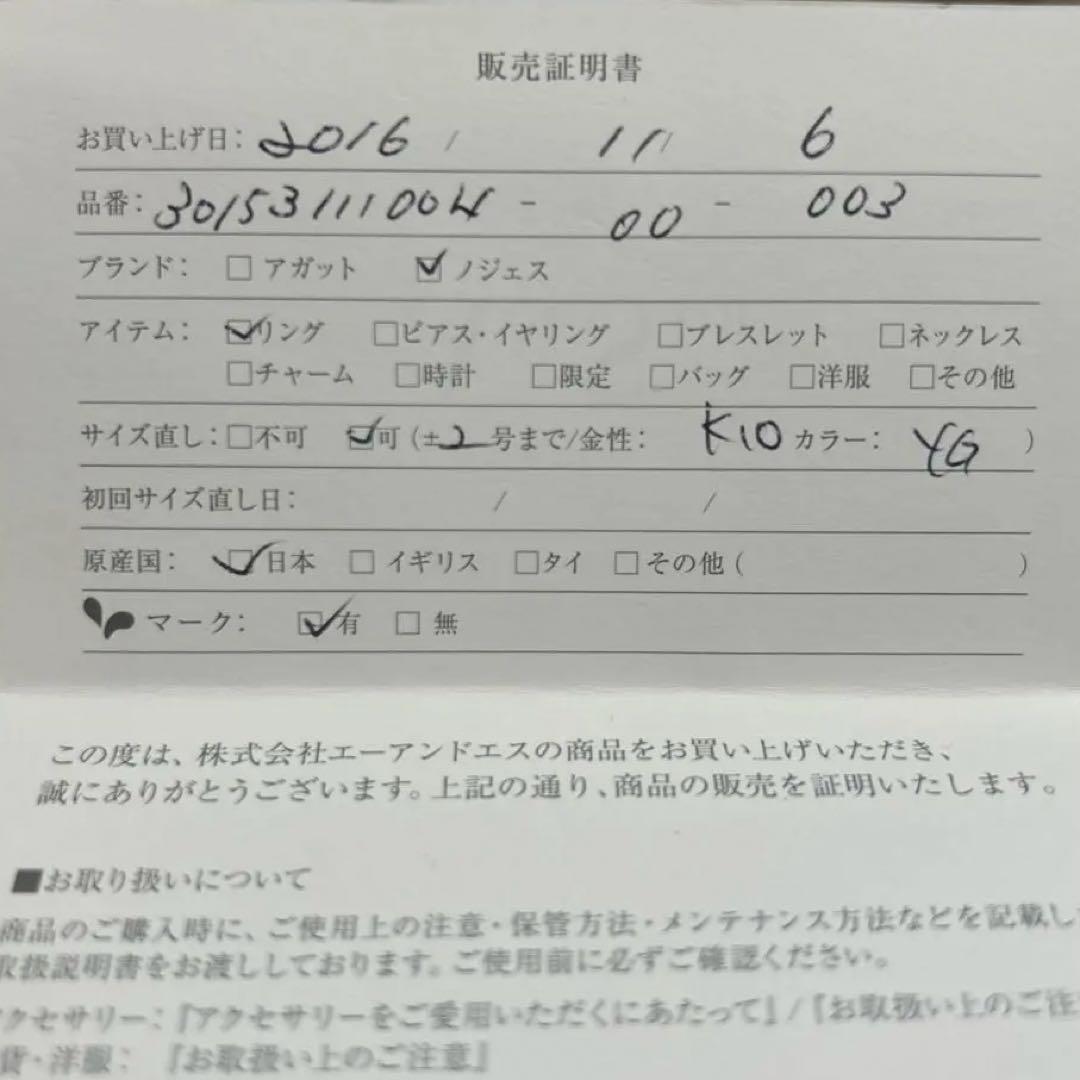 販売証明書
お買い上げ日: 2016 / 11 / 6
品番: 30153111004 - 00 - 003
ブランド: □ アガット ☑ ノジェス
アイテム: ☑リング □ピアス・イヤリング □ブレスレット □ネックレス
□チャーム □時計 □限定 □バッグ □洋服 □その他
サイズ直し: □不可 ☑可 (±2号まで/金性: K10 カラー: YG )
初回サイズ直し日: / /
原産国: ☑日本 □ イギリス □タイ □ その他 ( )
マーク: ☑有 □ 無
この度は、株式会社エーアンドエスの商品をお買い上げいただき、
誠にありがとうございます。上記の通り、商品の販売を証明いたします。
■お取り扱いについて
商品のご購入時に、ご使用上の注意・保管方法・メンテナンス方法などを記載し
取扱説明書をお渡ししております。ご使用前に必ずご確認ください。
クセサリー:『アクセサリーをご愛用いただくにあたって』/『お取扱い上のご注
貨・洋服: 『お取扱い上のご注意』